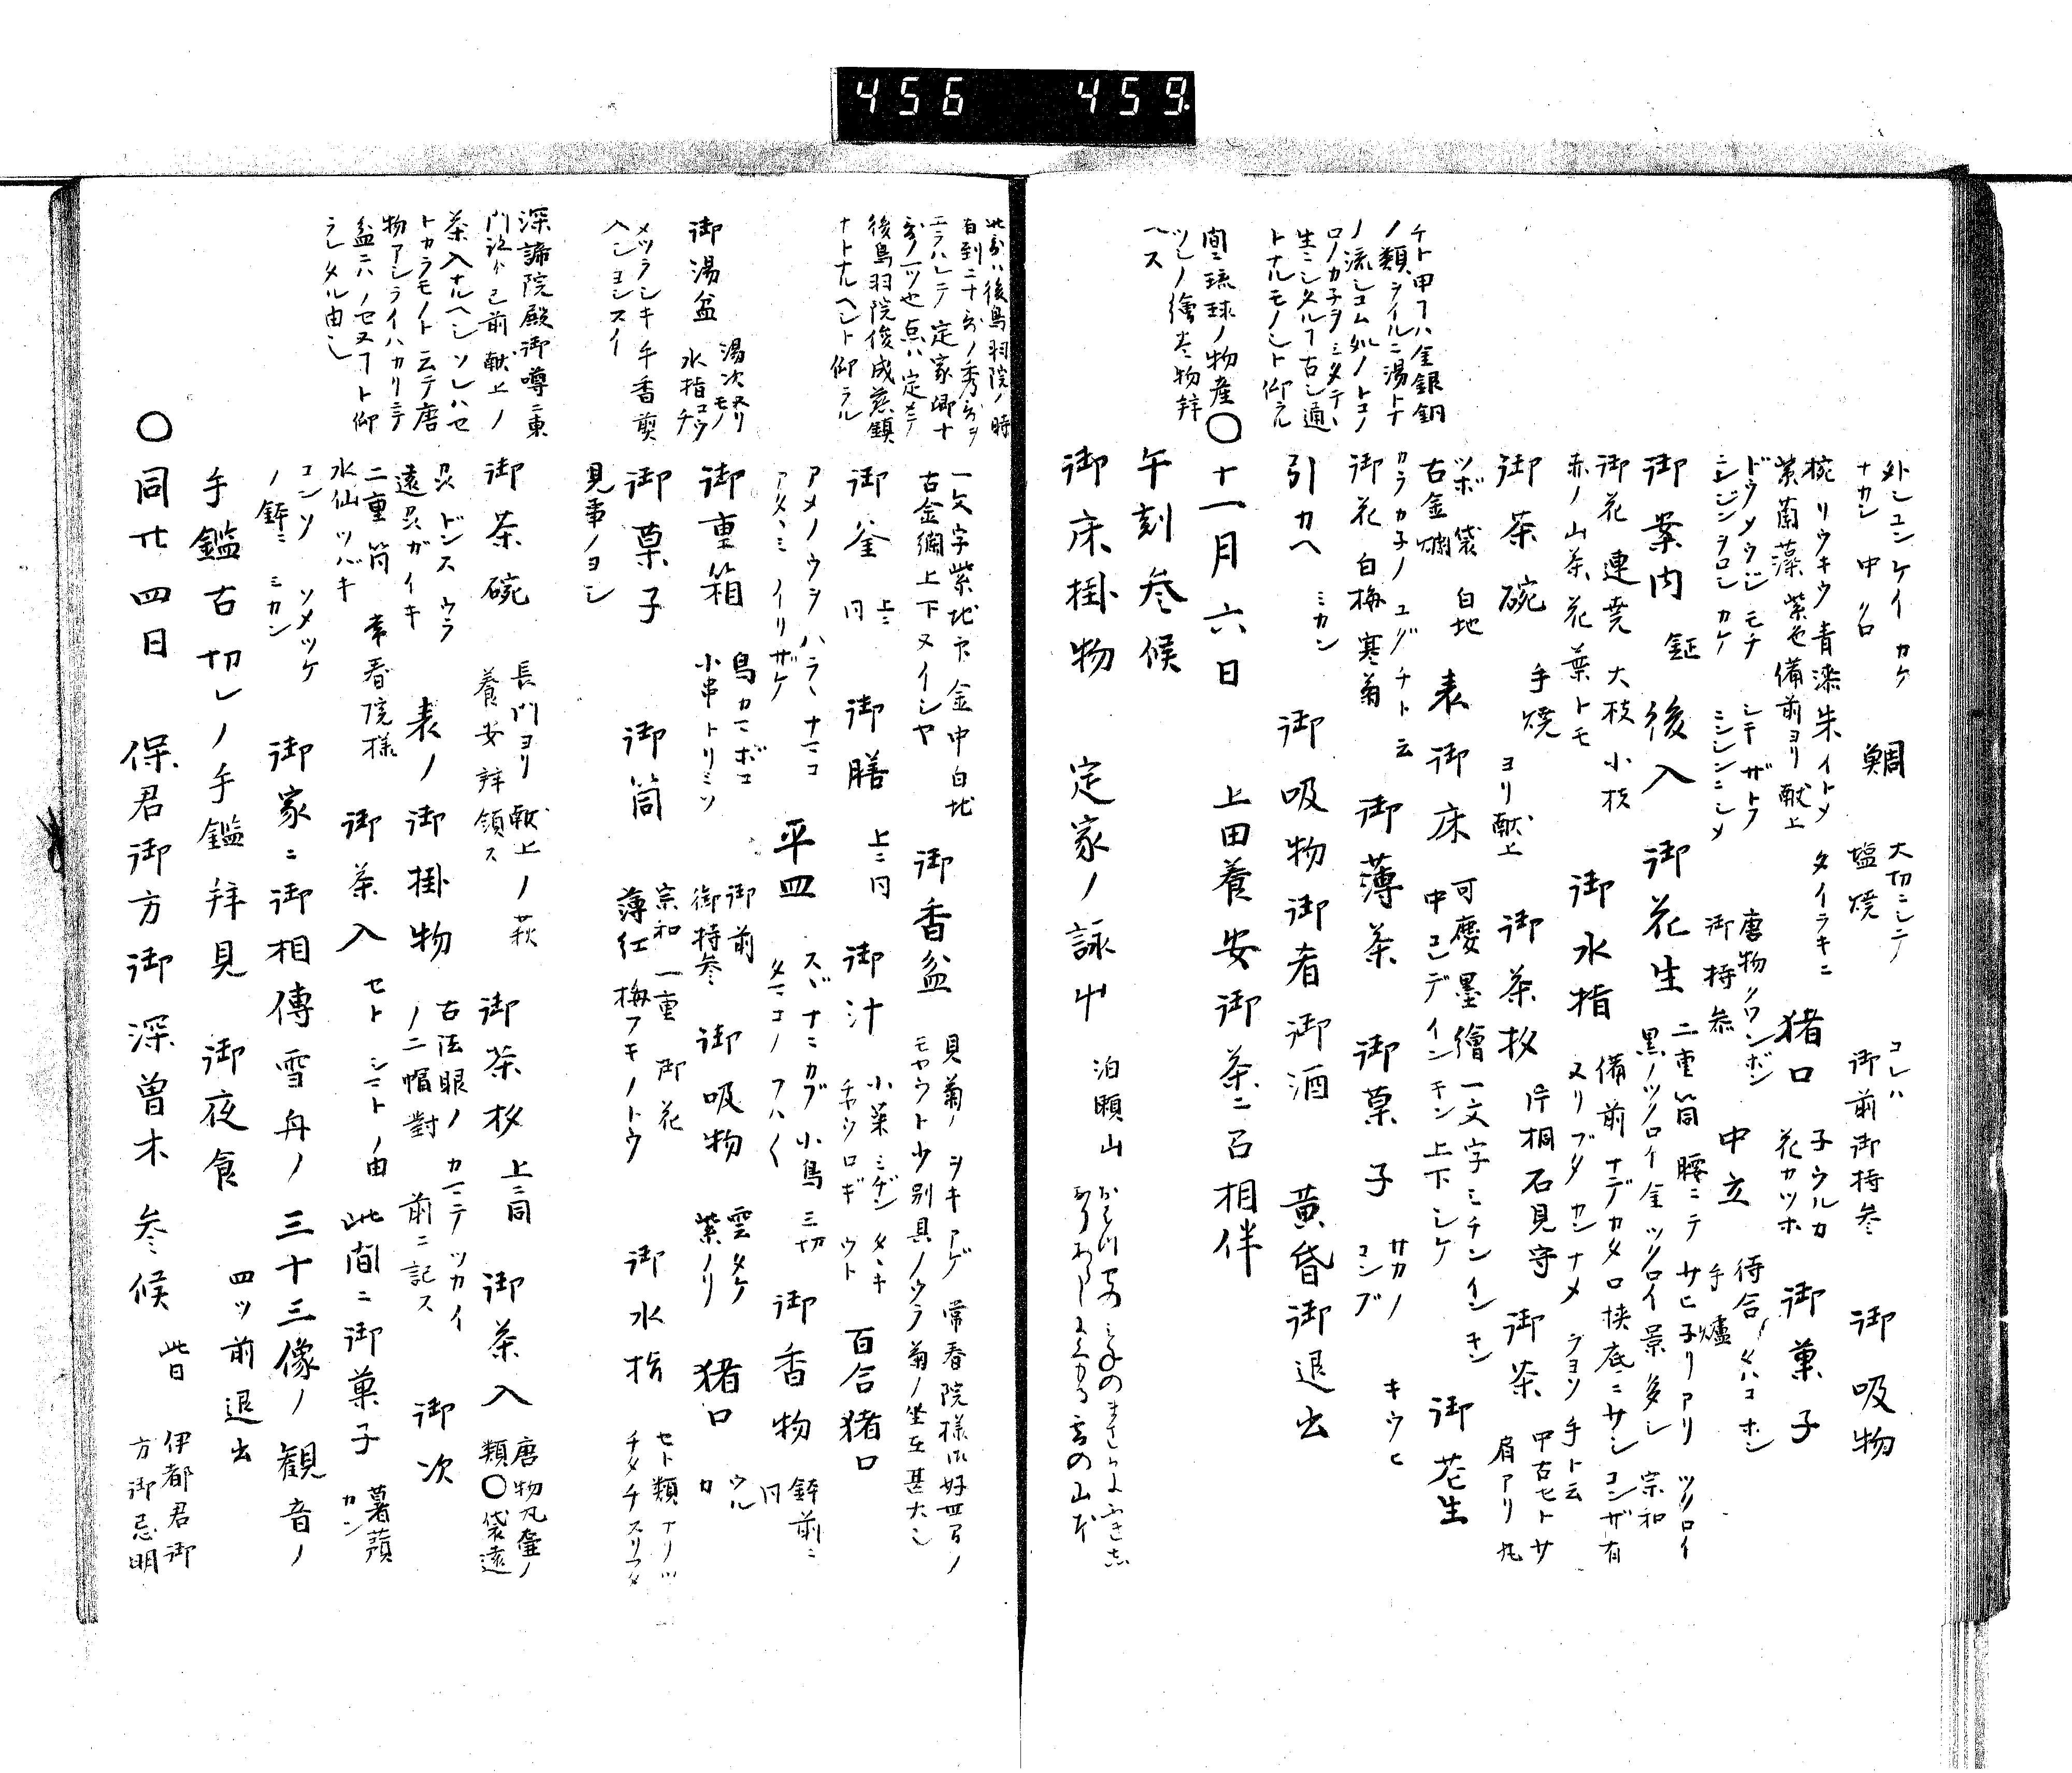 456 459
チト甲フハ金銀銅
ノ類ヲイルニ湯トナ
ノ流シコム処ノトコ
ロノカ子ヲミタテ
生ニシタルフ古シ通
トナルモノシト仰ラル
間ニ琉球ノ物産
ツシノ繪巻物拝
ヘス
外シユンケイ カケ
ナカシ 中クロ
鯛 大切ニシテ
塩焼 コレハ
御前御持参 御吸物
椀 リウキウ青漆朱イトメ
紫蘭藻紫色備前ヨリ献上
タイラキニ
猪口 子ウルカ
花カツホ 御菓子
ドウメウジモチ シテザトフ
ミシンヲロシカケ ミシンニシメ
唐物クワンボン
御持参 中立 待合ノタハコホン
手爐
御案内 鉦 後入 御花生 二重筒 腰ニテサヒ子リアリ ツクロイ
黒ノツクロイ金ツクロイ景多シ 宗和
御花 連尭 大枝 小枝
赤ノ山茶花葉トモ
御水指 備前ナデカタロ挟底ニサシコンザ有
ヌリブタ カンナメ ヲヨソ手ト云
御茶碗 手焼
ヨリ献上
御茶杓 片桐石見守 御茶 甲古セトサ
肩アリ丸
ツボ 袋 白地
古金襴 表御床 可慶墨繪一文字ミチンインキン
中コンデインキン上下シケ
御花生
カラカ子ノ ユグチト云
御花 白梅寒菊 御薄茶 御菓子 サカノ
コンブ キウヒ
引カヘ ミカン 御吸物御肴御酒 黄昏御退出
〇十一月六日 上田養安御茶ニ召相伴
午刻参候
御床掛物 定家ノ詠中 泊瀬山
此分ハ後鳥羽院ノ時
エラハレテ定家卿十
後鳥羽院俊成慈鎮
ナトナルヘシト仰ラル
一文字紫地キ金中白地
古金襴上下ヌイシヤ 御香盆 貝菊ノヲキアゲ 常春院様御好四アノ
モヤウト少別具ノウラ菊ノ坐至甚大シ
御釜 上ニ
同 御膳 上ニ同 御汁 小菜ミヂンタヽキ
チヤツロギ ウト 百合猪口
アメノウヲハラヽナマコ
アタヽミ イリザケ 平皿 スヾナニカブ小鳥三切
タマコノフハ〱 御香物 鉢前ニ
同
御湯盆 湯次ヌリモノ
水指コウチ
御重箱 鳥カマボコ
小串トリミソ 御前
御持参 御吸物 雲タケ
紫ノリ 猪口 ウル
カ
メツラシキ手香奠
ヘシヨシスイ
御菓子 御筒 宗和一重 御花
薄紅梅フキノトウ 御水指 セト類アリツ
チタチスリフタ
見事ノヨシ
深諦院殿御噂ニ東
門跡ゟ已前献上ノ
茶入ナルヘシソレハセ
トカラモノト云テ唐
物アシライハカリニテ
盆ニハノセヌフト仰
ラレタル由シ
御茶碗 長門ヨリ献上ノ萩
養安拝領ス 御茶杓 上ニ同 御茶入 唐物丸壷ノ
類〇袋遠
呉ドンスウラ
遠呉ガイキ 表ノ御掛物 古法眼ノカマテツカイ
ノ二幅對 前ニ記ス 御次
二重筒 常春院様
水仙ツバキ 御茶入 セト シマトノ由 此間ニ御菓子 薯蕷
カン
コンソ ソメツケ
ノ鉢ニ ミカン 御家ニ御相傳雪舟ノ三十三像ノ観音ノ
手鑑古切レノ手鑑拝見 御夜食 四ツ前退出
〇同廿四日 保君御方御深曽木参候 此日 伊都君御
方御忌明